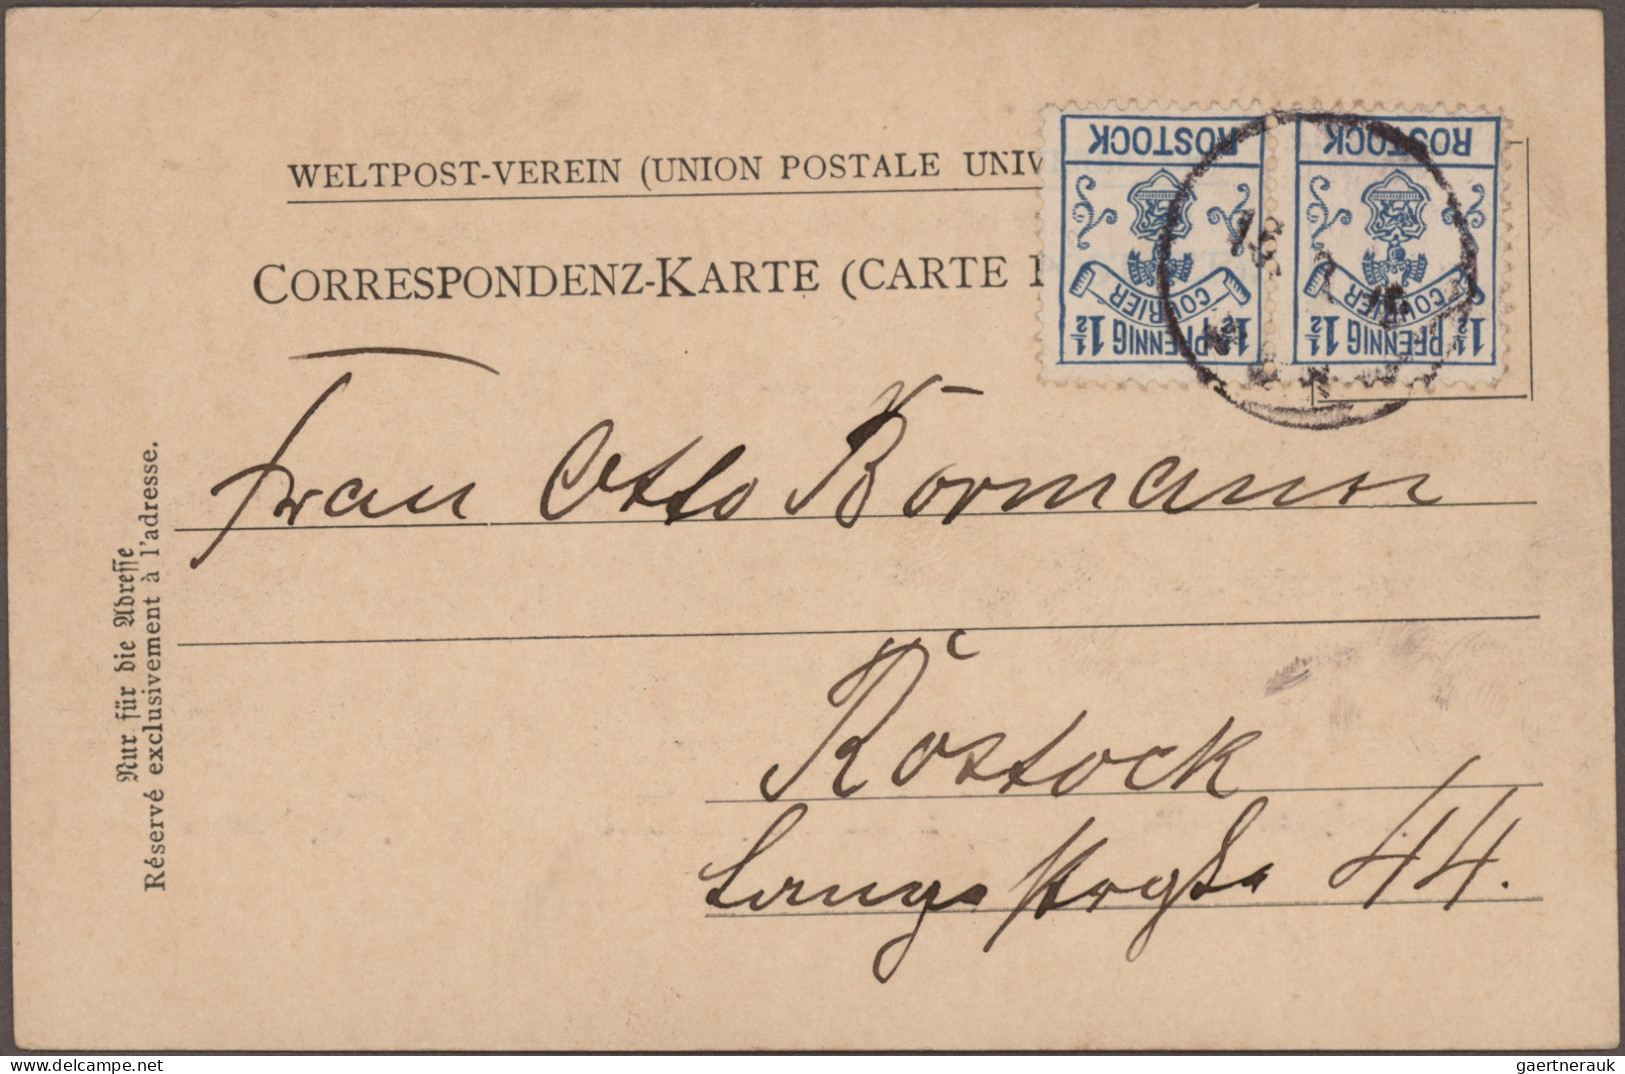 WELTPOST-VEREIN (UNION POSTALE UNIV
CORRESPONDENZ-KARTE (CARTE
ROSTOCK
COURIER
1½ PFENNIG 1½
ROSTOCK
COURIER
1½ PFENNIG 1½
18
Nur für die Adresse
Réservé exclusivement à l'adresse.
Frau Otto Bormann
Rostock
44.
gaertnerauk